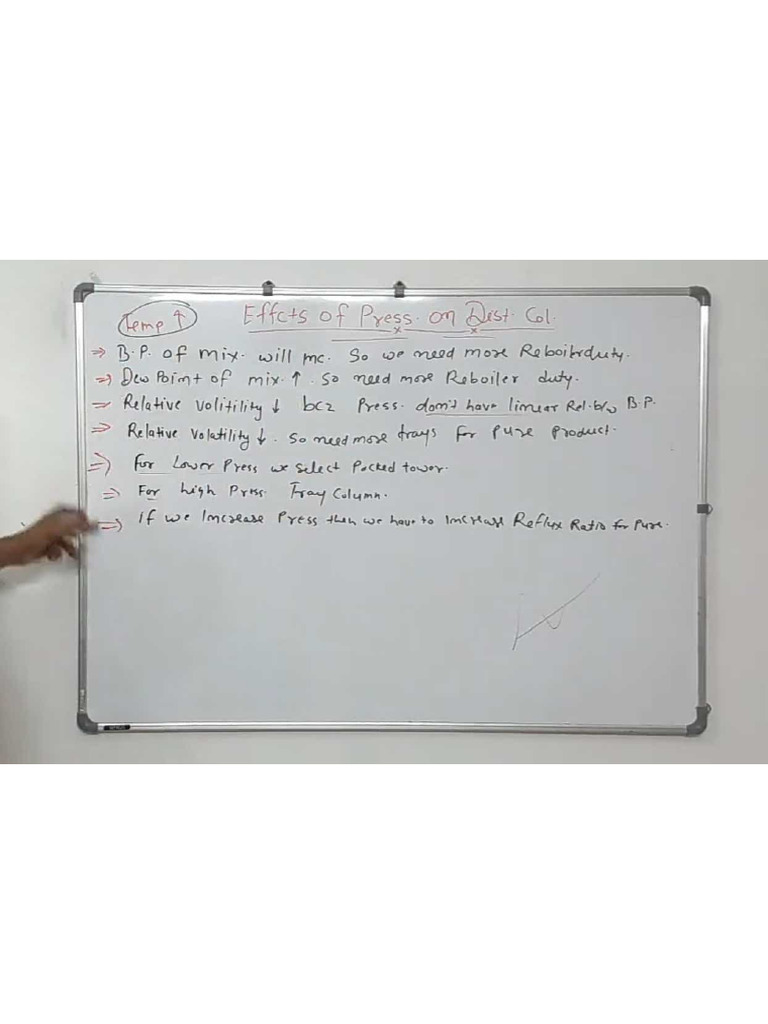 Temp ↑ Effcts of Press. on Dist. Col.
⇒ B.P. of mix. will inc. So we need more Reboiler duty.
⇒ Dew Point of mix. ↑. So need more Reboiler duty.
⇒ Relative Volitility ↓ bcz Press. don't have linear Rel. b/w B.P.
⇒ Relative Volatility ↓. So need more trays for Pure Product.
⇒ For Lower Press we select Packed tower.
⇒ For high Press. Tray Column.
⇒ If we Increase Press then we have to Increase Reflux Ratio for Pure.